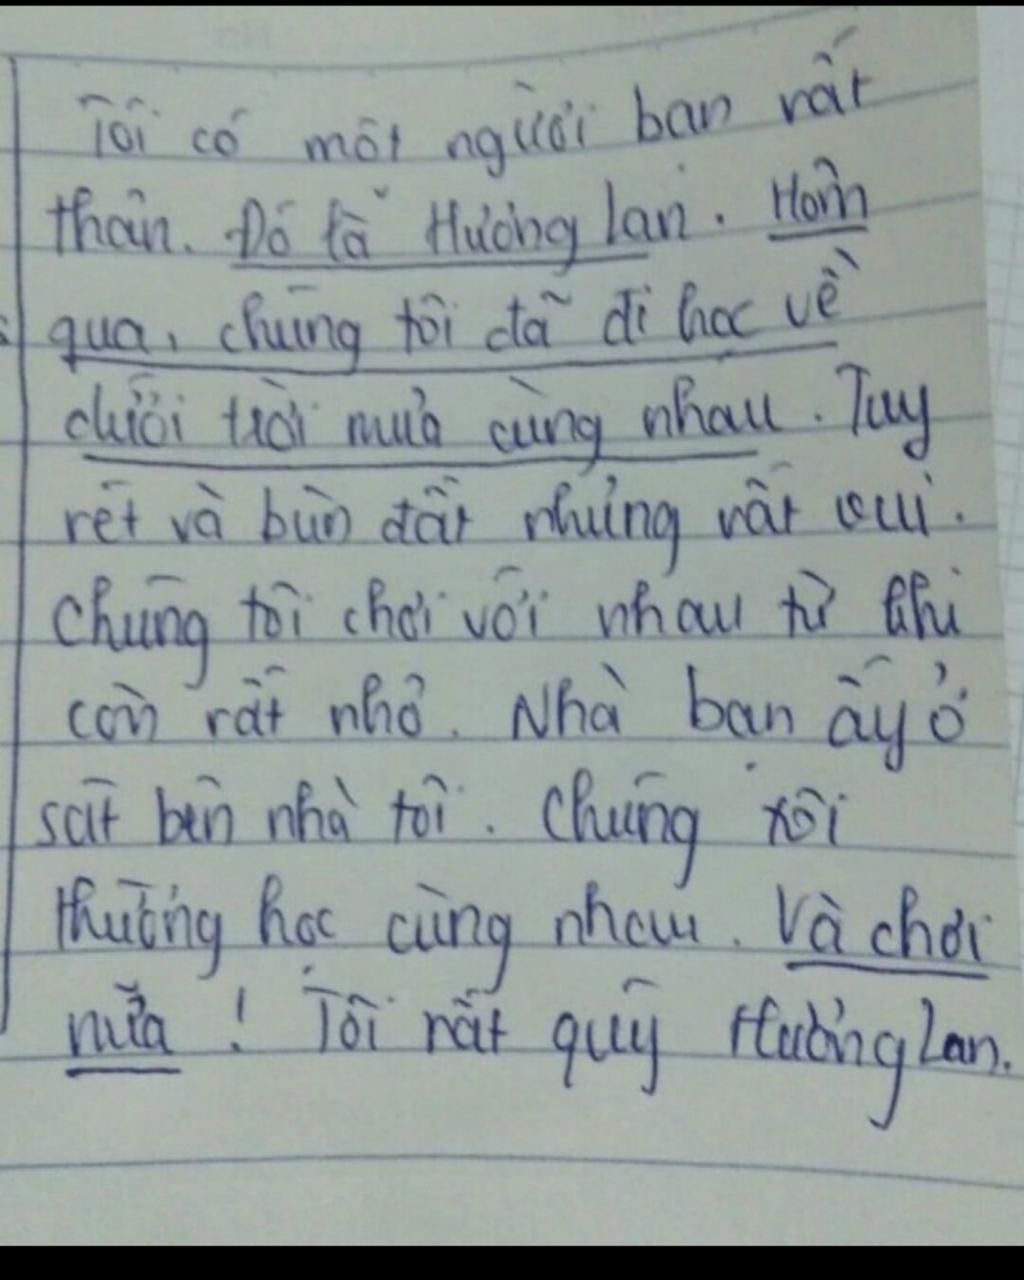 Tôi có một người bạn rất
thân. Đó là Hương Lan. Hôm
qua, chúng tôi đã đi học về
dưới trời mưa cùng nhau. Tuy
rét và bùn đất nhưng rất vui.
Chúng tôi chơi với nhau từ khi
còn rất nhỏ. Nhà bạn ấy ở
sát bên nhà tôi. Chúng tôi
thường học cùng nhau. Và chơi
nữa! Tôi rất quý Hương Lan.